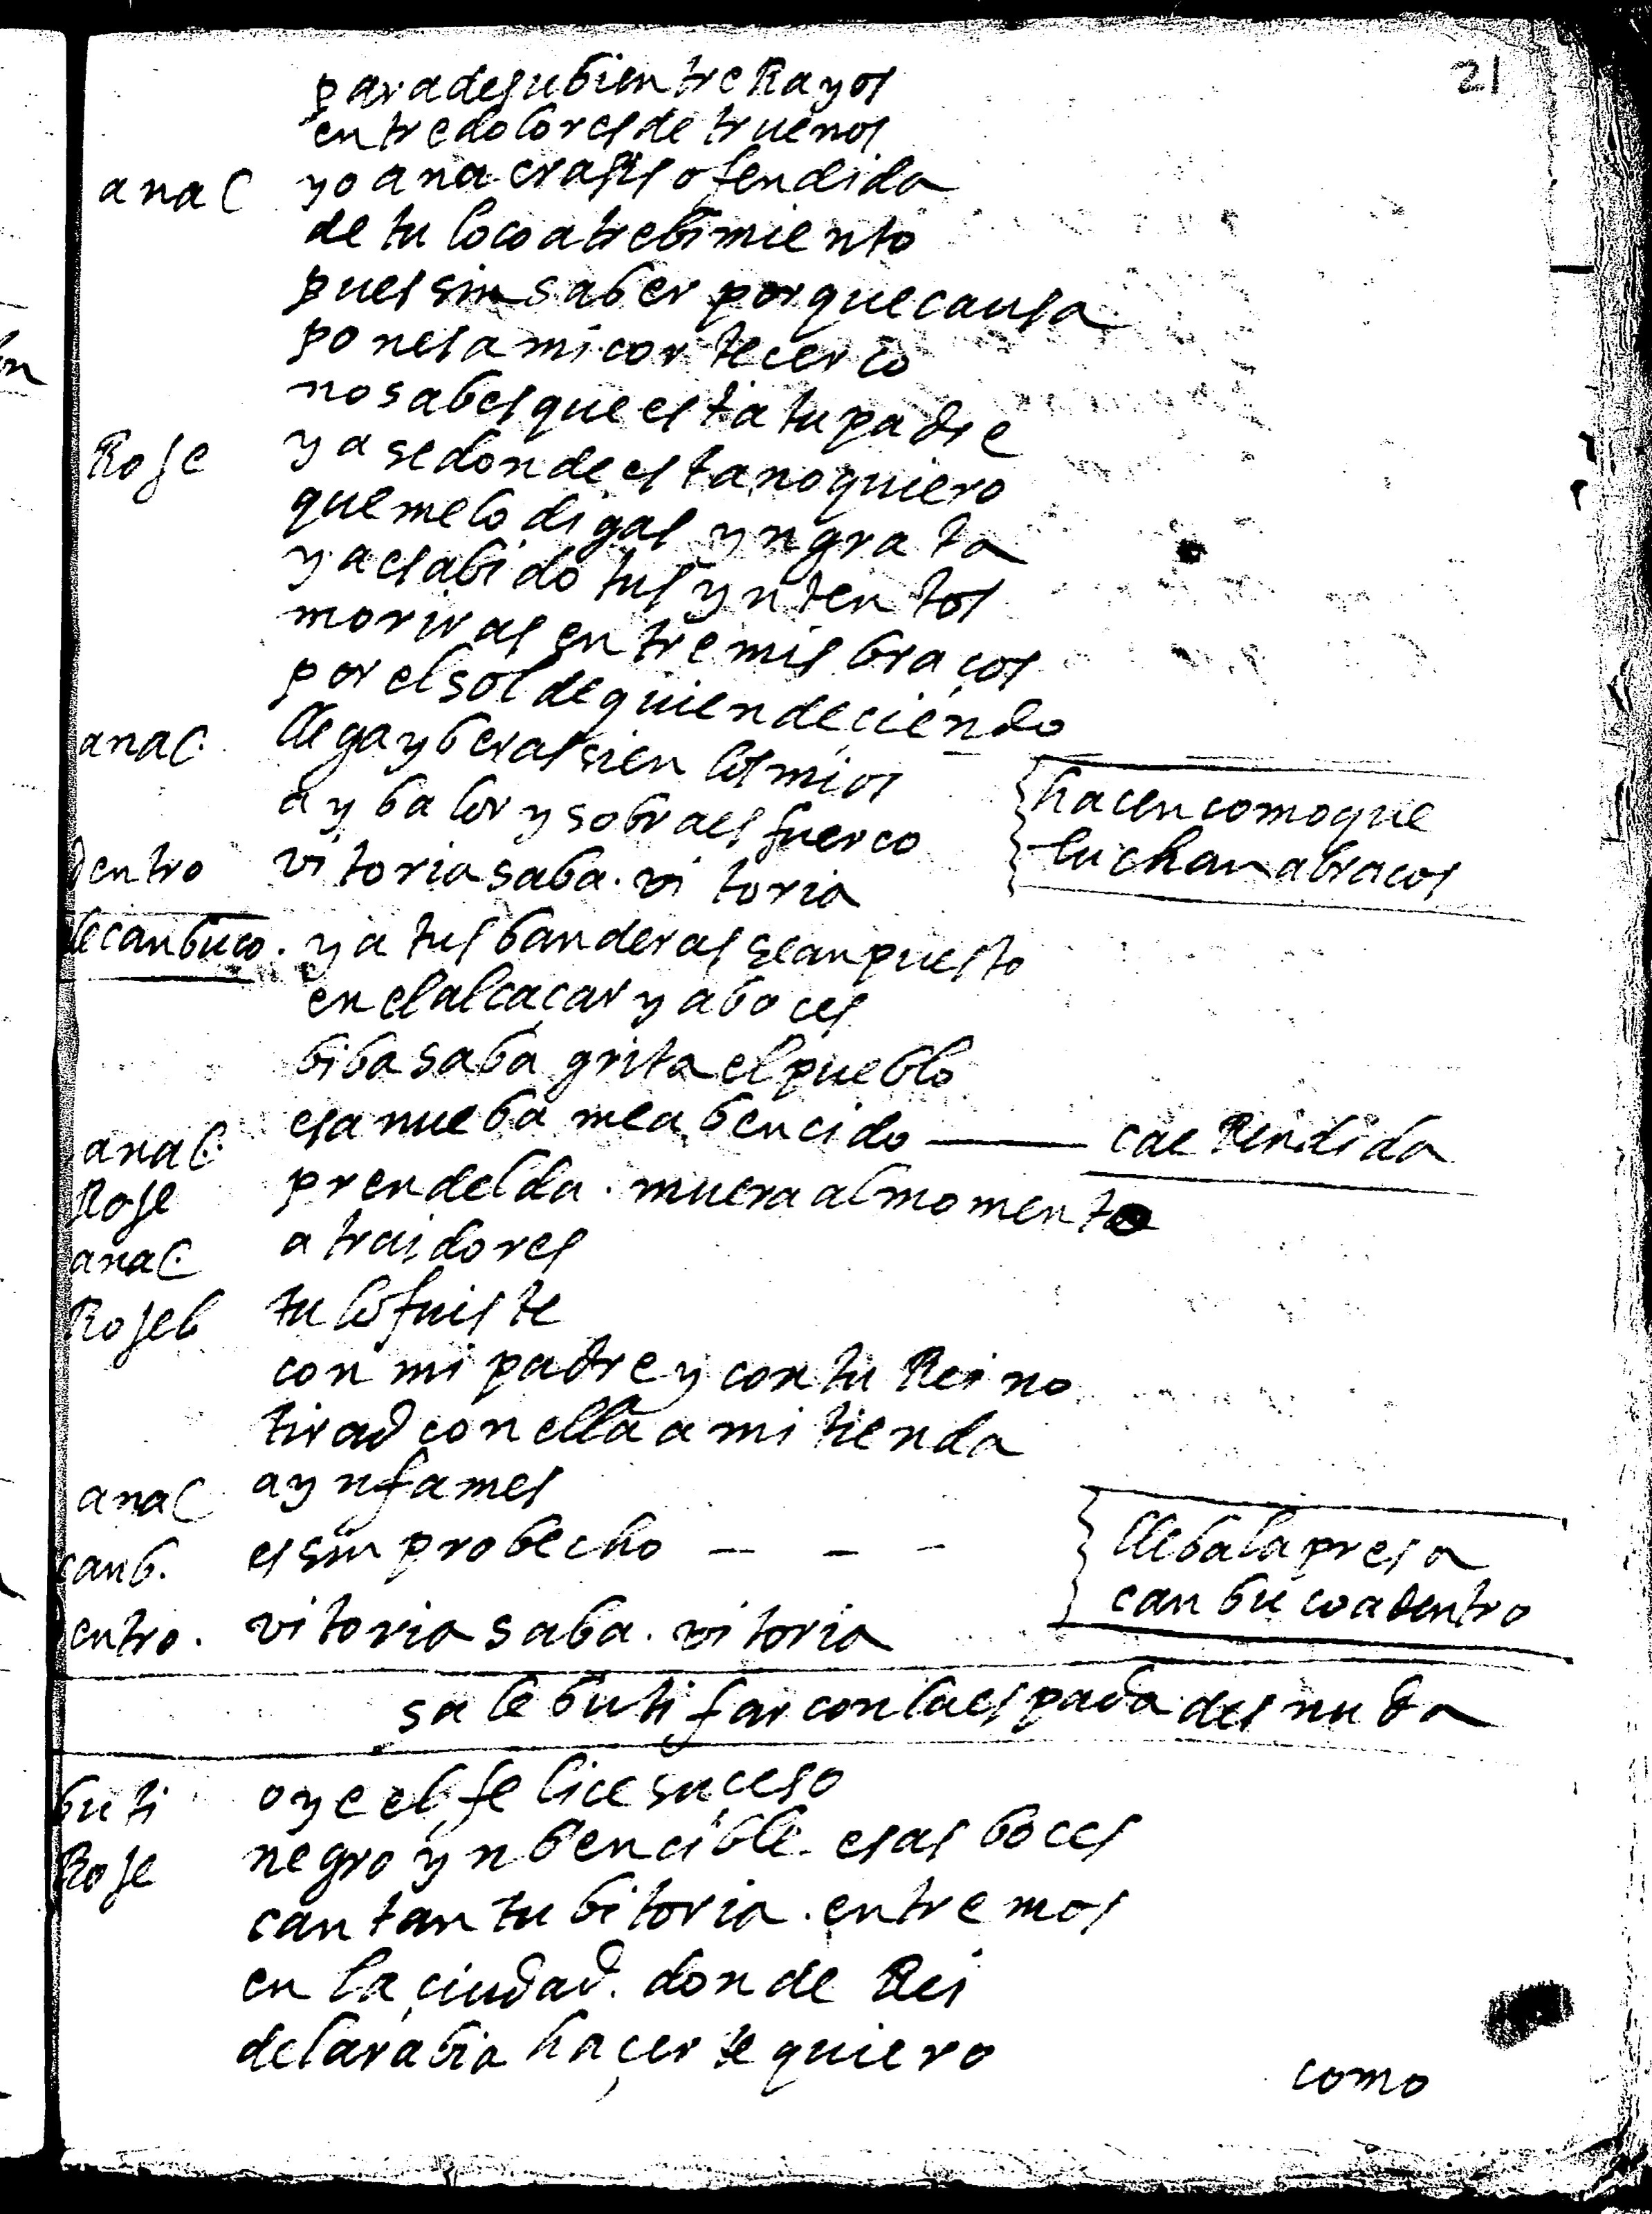 21
paradesubientre Rayos
entre dolores de truenos
anac yo anacrasis ofendida
de tu loco atrebimiento
pues sin saber por que causa
pones a mi corte cerco
no sabes que esta tu padre
Rose ya se donde esta no quiero
que me lo digas yngrata
ya e sabido tus yntentos
moriras entre mis braços
por el sol de quien deçiendo
anac. llega y beras si en los mios
ay balor y sobra esfuerço
hacen como que
luchan a braços
dentro vitoria saba. vitoria
le canbuco. ya tus banderas se an puesto
en el alcaçar y a boçes
biba saba grita el pueblo
anac. esa nueba me a bencido — cae Rendida
Rose prendelda. muera al momento
anac. a traidores
Roseb tu lo fuiste
con mi padre y con tu Reino
tirad con ella a mi tienda
anac a ynfames
canb. es sin probecho – – –
lleba la presa
canbuco adentro
entro. vitoria saba. vitoria
sale butifar con la espada desnuda
buti oye el felice suçeso
Rose negro ynbencible. esas boces
cantan tu bitoria. entremos
en la çiudad. donde Rei
de la rabia haçerte quiero
como